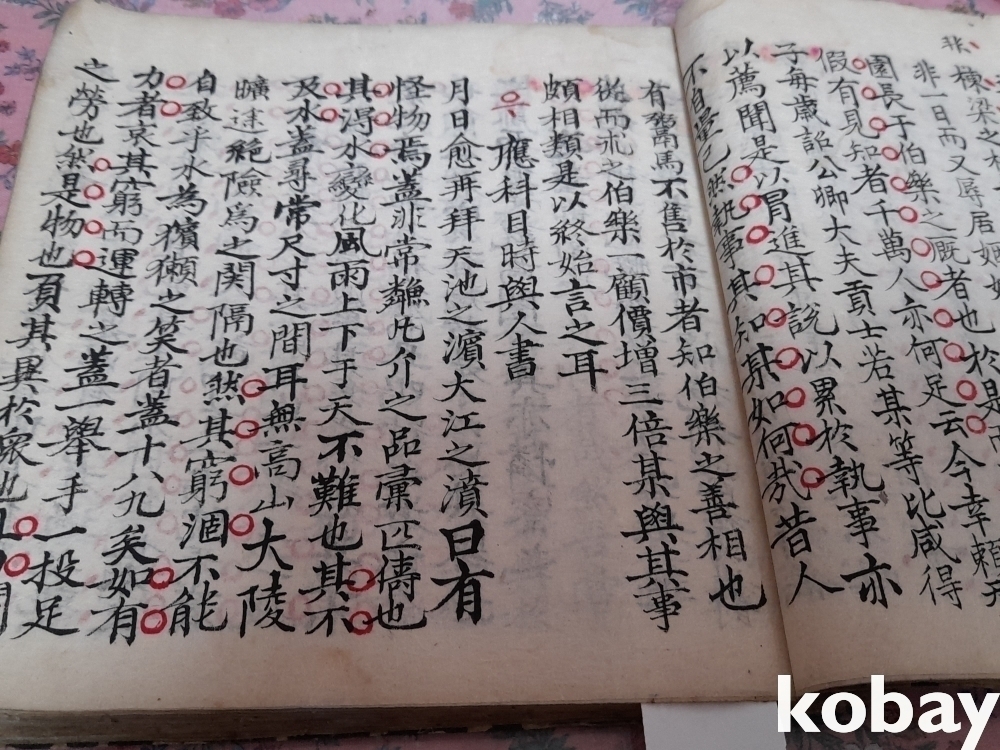 非
棟梁之
非一日而又辱居姻
園長于伯樂之厩者也於是
假有見知者千萬人亦何足云今幸賴天
子每歲詔公卿大夫貢士若某等比咸得
以薦聞是以冒進其說以累於執事亦
不自量已然執事其知某如何哉昔人
有鬻馬不售於市者知伯樂之善相也
從而求之伯樂一顧價增三倍某與其事
頗相類是以終始言之耳
應科目時與人書
月日愈再拜天池之濱大江之濆曰有
怪物焉蓋非常鱗凡介之品彙匹儔也
其得水變化風雨上下于天不難也其不
及水蓋尋常尺寸之間耳無高山大陵
曠途絕險為之関隔也然其窮涸不能
自致乎水為獱獺之笑者蓋十八九矣如有
力者哀其窮而運轉之蓋一舉手一投足
之勞也然是物也負其異於衆也
kobay